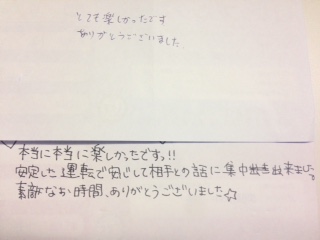 とても楽しかったです
ありがとうございました
本当に本当に楽しかったですっ!!
安定した運転で安心して相手との話に集中出来ました
素敵なお時間、ありがとうございました☆